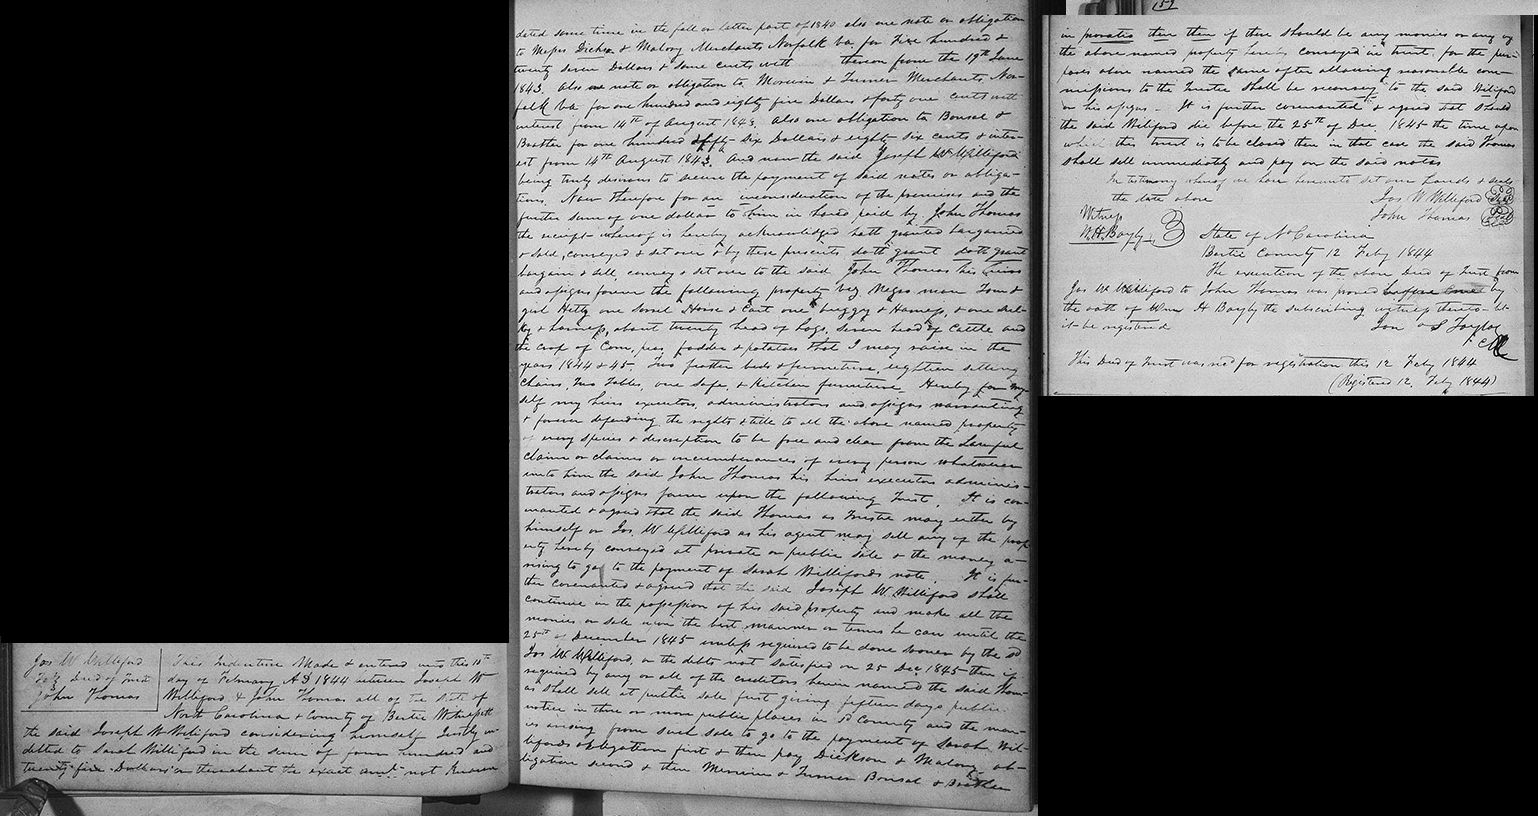 Jos W Williford
To } Deed of Trust
John Thomas
This Indenture Made & entered into this 10th
day of February AD 1844 between Joseph W
Williford & John Thomas all of the State of
North Carolina & County of Bertie Witnesseth
the said Joseph W Williford considering himself Justly in-
debted to Sarah Williford in the sum of four hundred and
twenty five Dollars or thereabout the exact amt not known
dated some time in the fall or latter part of 1840 also one note or obligation
to Messrs Dickson & Malory Merchants Norfolk Va for Five hundred &
twenty seven Dollars & some cents with thereon from the 19th June
1843. Also one note or obligation to Merwin & Turner Merchants Nor-
folk Va for one hundred and eighty five Dollars & forty one cents with
interest from 14th of August 1843 also one obligation to Bonsal &
Brother for one hundred & fifty Six Dollars & eighty six cents & inter-
est from 14th August 1843. And now the said Joseph W Williford
being truly desirous to secure the payment of said notes or obliga-
tions. Now therefore for an inconsideration of the premises and the
further sum of one dollar to him in hand paid by John Thomas
the receipt whereof is hereby acknowledged hath granted bargained
& sold, conveyed & set over & by these presents doth grant doth grant
bargain & sell convey & set over to the said John Thomas his heirs
and assigns forever the following property viz. Negro man Tom &
girl Hetty one Sorrel Horse & Cart one buggy & Harness, & one Sul-
ky & harness, about twenty head of hogs, seven head of Cattle and
the crop of Corn, peas, fodder & potatoes that I may raise in the
years 1844 & 45. Two feather beds & furniture, eighteen sitting
chairs, Two Tables, one Safe, & Kitchen furniture. Hereby for my
self my heirs executors, administrators and assigns warranting
& forever defending the rights & title to all the above named property
of every species & description to be free and clear from the Lawful
claim or claims or incumberances of every person whatsoever
unto him the said John Thomas his heirs executors adminis-
trators and assigns forever upon the following Trust. It is cov-
enanted & agreed that the said Thomas as Trustee may either by
himself or Jos. W Williford as his agent may sell any of the prop
erty hereby conveyed at private or public sale & the money a-
rising to go to the payment of Sarah Williford's note. It is fur-
ther covenanted & agreed that the said Joseph W. Williford shall
continue in the possession of his said property and make all the
monies or sale upon the best manner or terms he can until the
25th of December 1845 unless required to be done sooner by the sd
Jos W Williford, or the debts not satisfied on 25 Dec. 1845 then if
required by any or all of the creditors herein named the said Thom-
as shall sell at public sale first giving fifteen days public
notice in three or more public places in sd County and the mon-
ies arising from such sale to go to the payment of Sarah Wil-
lifords obligation first & then pay Dickson & Malory ob-
ligation second & then Merwin & Turner Bonsal & Brother
in prorata then then if there should be any monies or any of
the above named property hereby conveyed in trust for the pur-
poses above named the same after allowing reasonable com-
missions to the Trustee shall be reconvey to the said Williford
or his assigns. It is further covenanted & agreed that should
the said Williford die before the 25th of Dec. 1845 the time upon
which this trust is to be closed then in that case the said Thomas
shall sell immediately and pay on the said notes
In testimony whereof we have hereunto set our hands & seals
the date above
Jos W Williford
John Thomas
Witness
W. H. Bayly
State of No Carolina
Bertie County 12 Feby 1844
The execution of the above Deed of Trust from
Jos W Williford to John Thomas was proved before me by
the oath of Wm H Bayly the subscribing witness thereto. Let
it be registered
Jon S Taylor
Clk
This Deed of Trust was recd for registration this 12 Feby 1844
(Registered 12, Feby 1844)